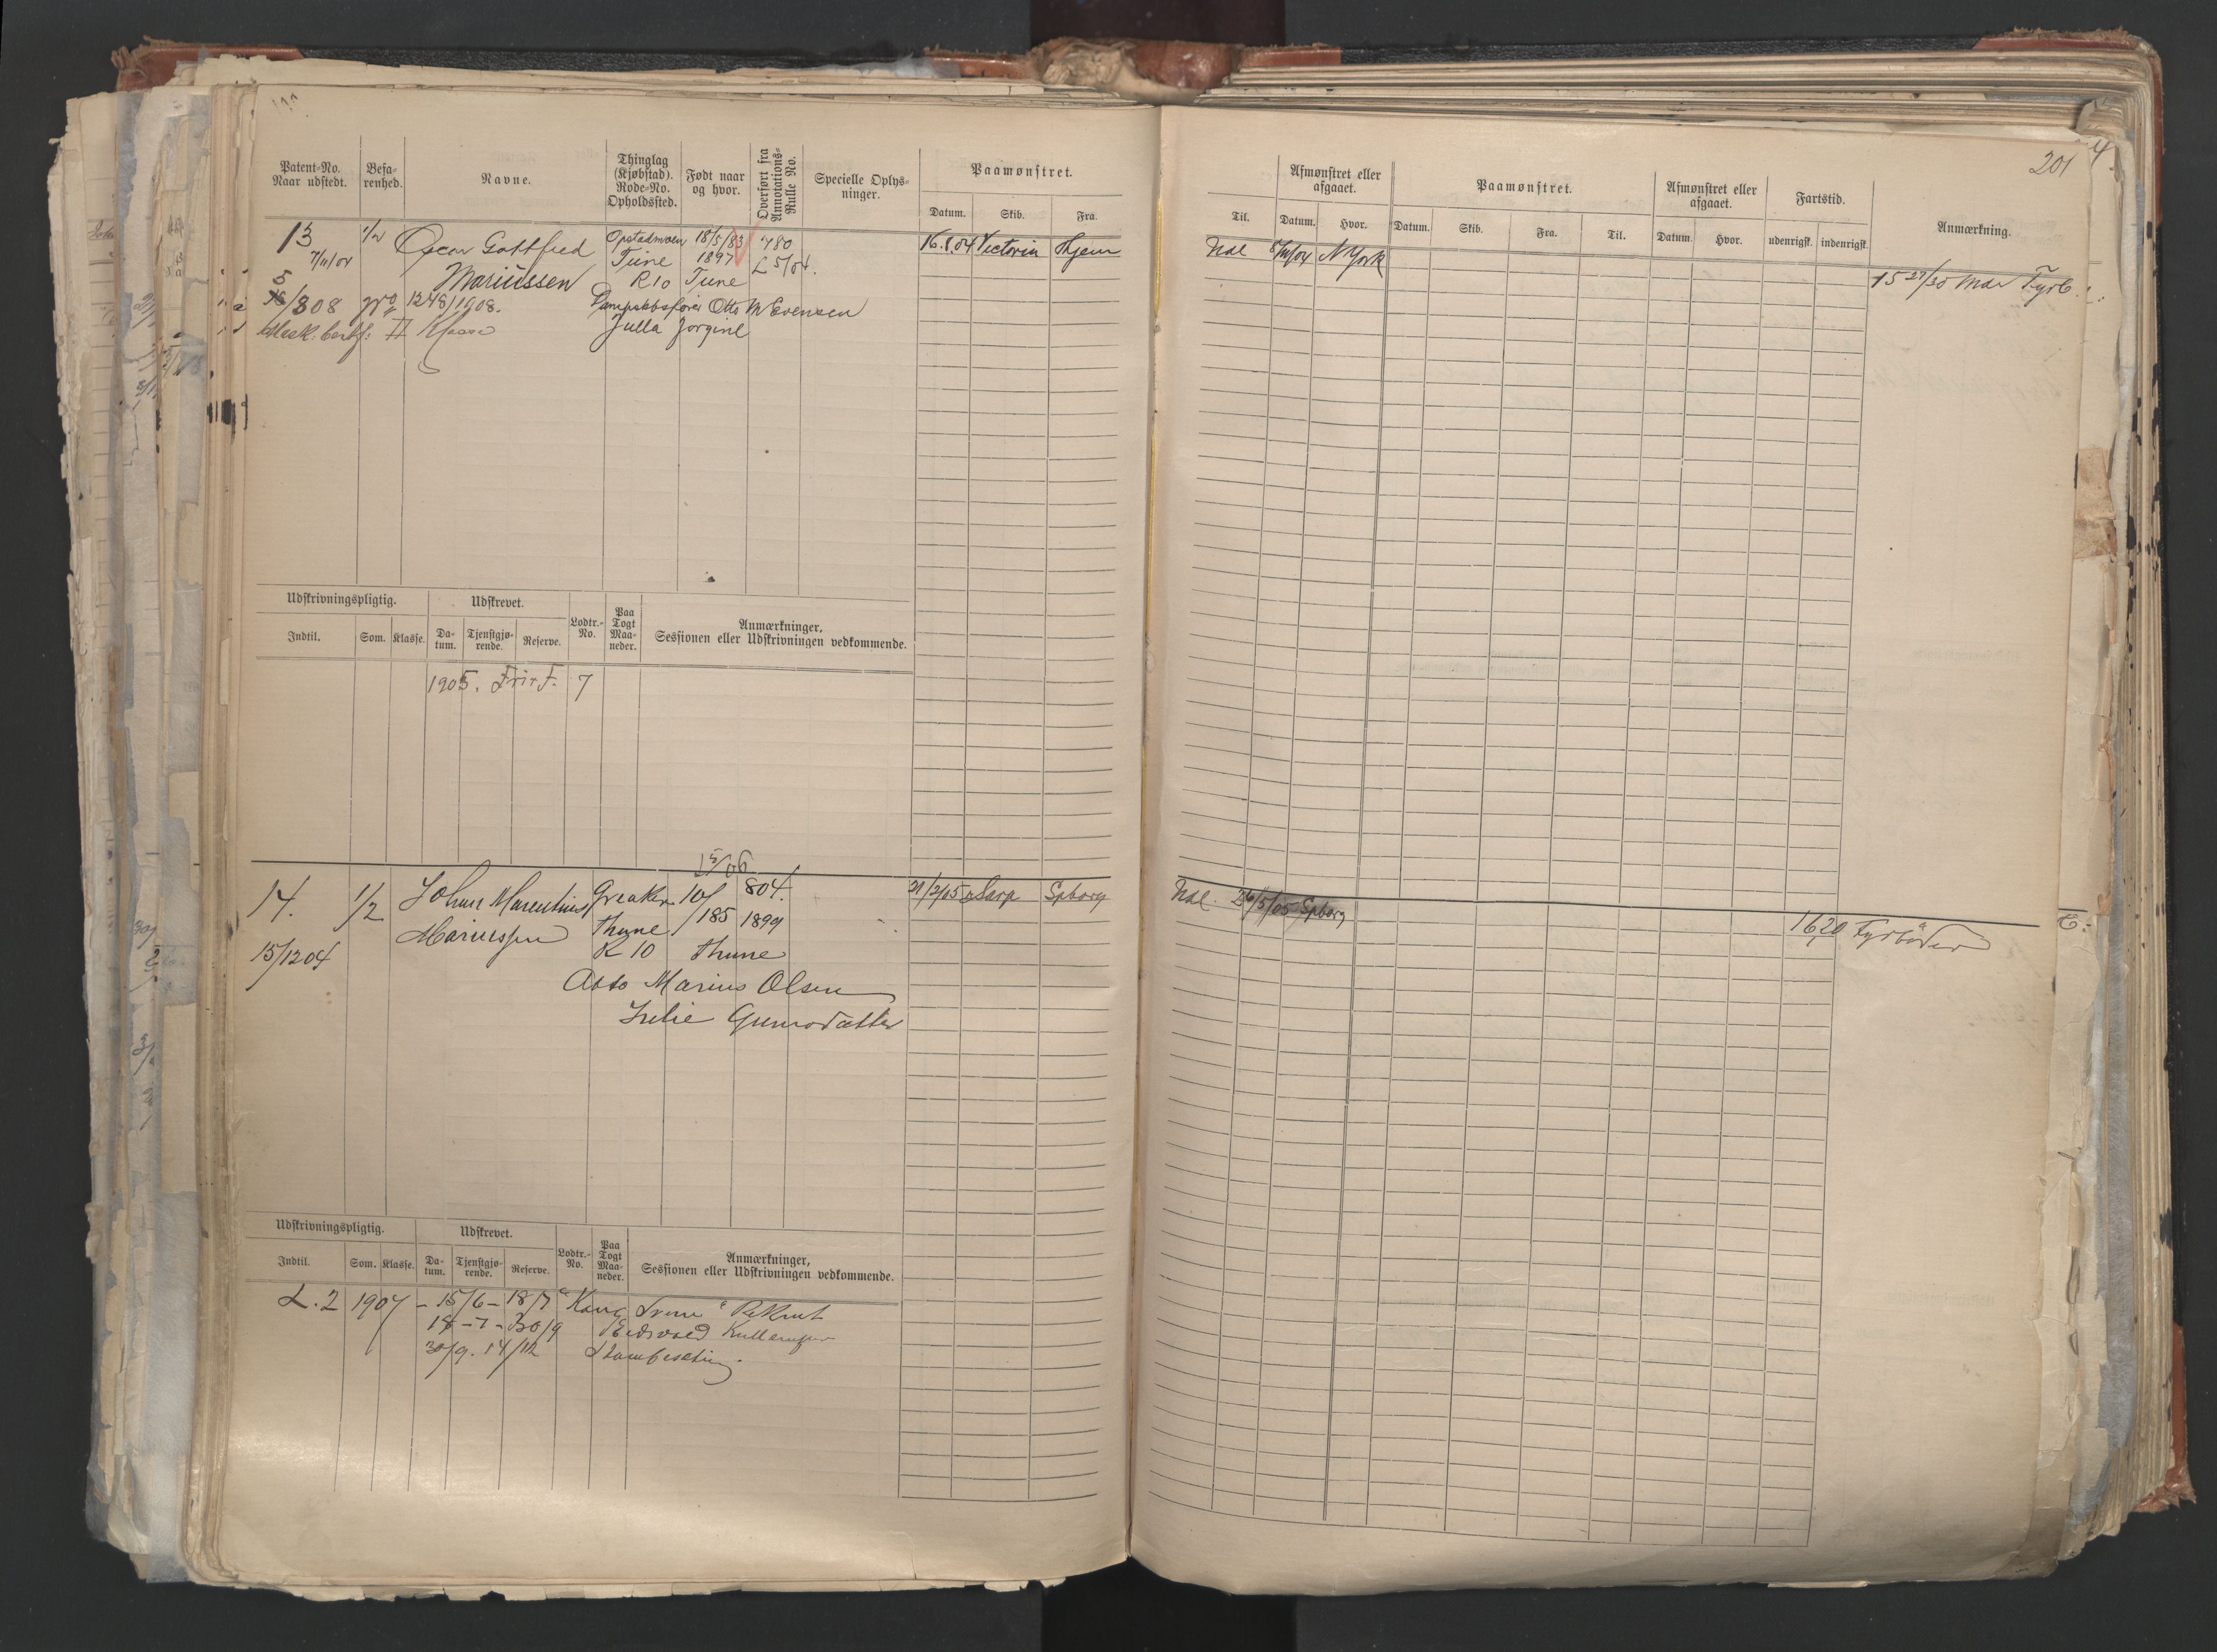 201
Patent-No. Naar udstedt.
Befarenhed.
Navne.
Thinglag (Kjøbstad). Rode-No. Opholdssted.
Født naar og hvor.
Overført fra Annotations-Rulle No.
Specielle Oplysninger.
Paamønstret.
Datum. Skib. Fra.
Til.
Afmønstret eller afgaaet.
Datum. Hvor.
Paamønstret.
Datum. Skib. Fra. Til.
Afmønstret eller afgaaet.
Datum. Hvor.
Fartstid.
udenrigsk. indenrigsk.
Anmærkning.
13 1/2 Oscar Gottfred Opstadmoen 18/5/83 780 16.8.04 Victoria Hjem
7/11/04 Tune 1897 L 5/04.
Mariussen R10 Tune
5
/308 No 1248/1908. Otto M Evensen
Mask: Certf: II Klasse Julla Jorgine
Ndl N York
15 27/30 Mdr Fyrb.
Udskrivningspligtig.
Indtil. Som. Klasse.
Udskrevet.
Datum. Tjenstgjørende. Reserve.
Lodtr.-No.
Paa Togt Maaneder.
Anmærkninger, Sessionen eller Udskrivningen vedkommende.
1905. Frir. 7
5/06
14. 1/2 Johan Marentius Greaker 10/ 804. 21/2/05 Sarp Spborg
/185 1899
Mariussen Thune
15/12 04 R 10 Thune
Marius Olsen
Julie
Ndl. 26/5/05 Spborg
1620 Fyrbøder
Udskrivningspligtig.
Indtil. Som. Klasse.
Udskrevet.
Datum. Tjenstgjørende. Reserve.
Lodtr.-No.
Paa Togt Maaneder.
Anmærkninger, Sessionen eller Udskrivningen vedkommende.
L. 2 1907 – 15/6 – 18/7 "Kong Sverre" Rekrut
18 – 7 – 30/9 Eidsvold
30/9. 14/12